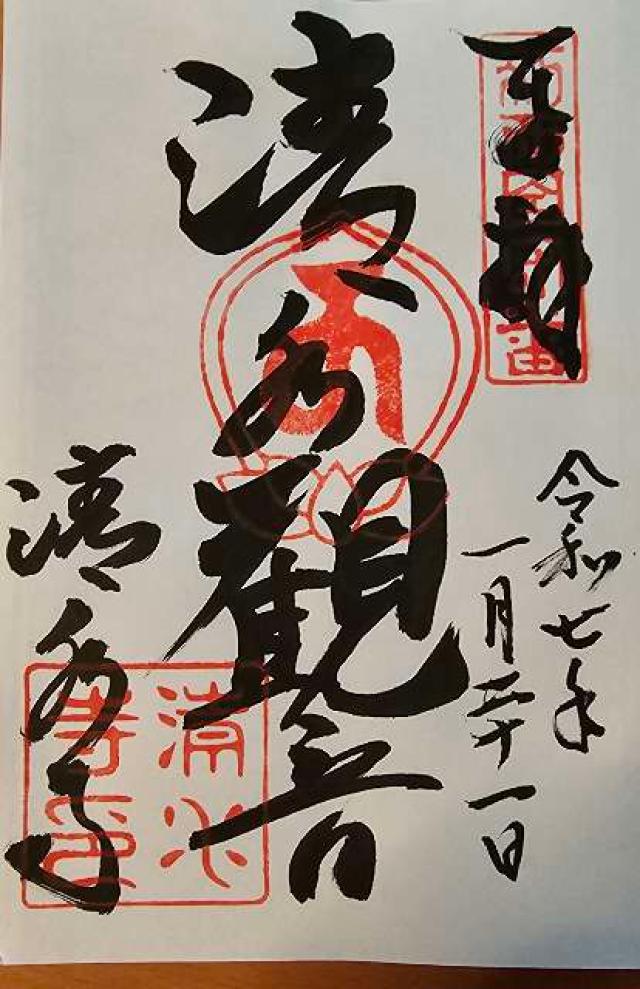 奉拝
令和七年
一月二十一日
清水觀音
清水寺
清水寺印